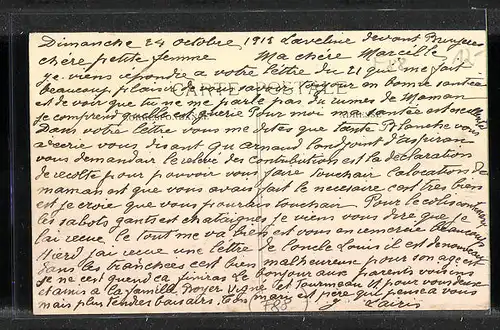 Dimanche 24 octobre 1915 Laveline devant Bruyères
chère petite femme Ma chère Marcelle
je viens répondre a votre lettre du 21 qui me fait
beaucoup plaisir de vous savoir toujours en bonne santée
et de voir que tu ne me parle pas du rumes de Maman
je comprend quelle est guérie Pour moi ma santée est excellente
CARTE POSTALE
Dans votre lettre vous me dites que tante Blanche vous
a écrie vous disant qu arnaud
vous demandair le relevé des contributions est la déclaration
de récolte pour pouvoir vous faire touchair l'alocation. De
maman est que vous avais fait le nécessaire cest très bien
est je croie que vous pourrais touchair. Pour le colis
les sabots gants est chataignes je viens vous dire que je
lai reçue. le tout me va bien est vous en remercie beaucoup
Hierd jai reçue une lettre de l'oncle Louis il est de nouveau
dans les tranchées cest bien malheureuse pour son age est
je ne cest quend ça finiras Le bonjour aux parents voisins
et amis a la famille Royer Vigne et Tourmeau et pour vous
mais plus tendres baisairs. Ton mary est père qui pense a vous